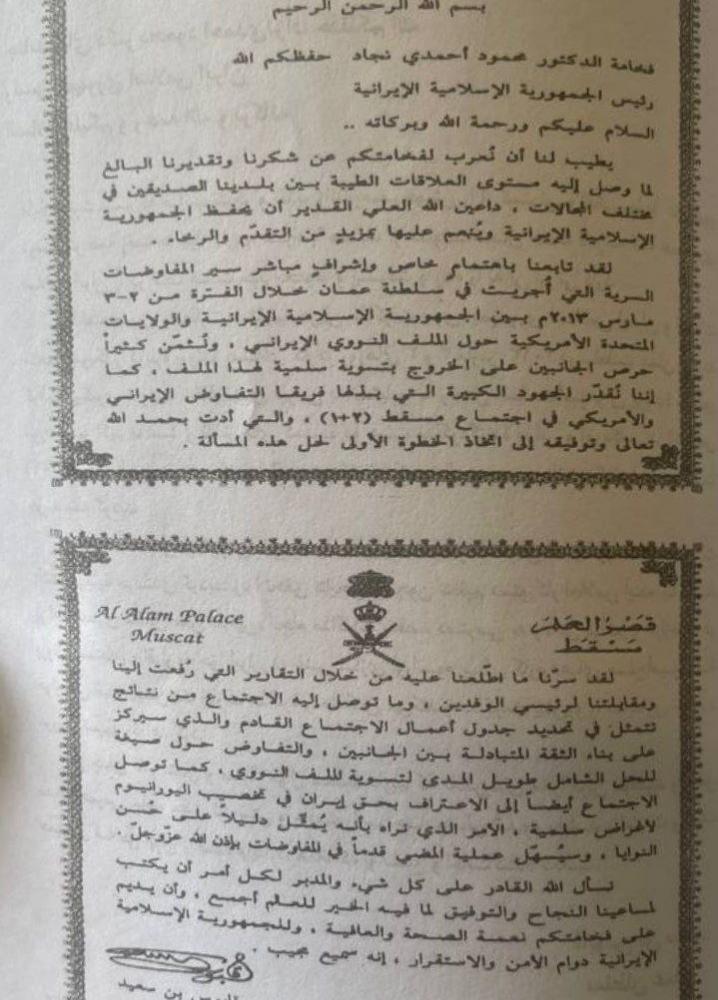 بسم الله الرحمن الرحيم
فخامة الدكتور محمود أحمدي نجاد حفظكم الله
رئيس الجمهورية الإسلامية الإيرانية
السلام عليكم ورحمة الله وبركاته ..
يطيب لنا أن نُعرب لفخامتكم عن شكرنا وتقديرنا البالغ
لما وصل إليه مستوى العلاقات الطيبة بين بلدينا الصديقين في
مختلف المجالات ، داعين الله العلي القدير أن يحفظ الجمهورية
الإسلامية الإيرانية ويُنعم عليها بمزيدٍ من التقدّم والرخاء .
لقد تابعنا باهتمام خاص وإشرافٍ مباشر سير المفاوضات
السرية التي أُجريت في سلطنة عمان خلال الفترة من ٢-٣
مارس ٢٠١٣م بين الجمهورية الإسلامية الإيرانية والولايات
المتحدة الأمريكية حول الملف النووي الإيراني ، ونُثمّن كثيراً
حرص الجانبين على الخروج بتسوية سلمية لهذا الملف ، كما
إننا نُقدّر الجهود الكبيرة التي بذلها فريقا التفاوض الإيراني
والأمريكي في اجتماع مسقط (٢+١) ، والتي أدت بحمد الله
تعالى وتوفيقه إلى اتخاذ الخطوة الأولى لحل هذه المسألة .
Al Alam Palace
Muscat
قصر العلم
مسقط
لقد سرّنا ما اطّلعنا عليه من خلال التقارير التي رُفعت إلينا
ومقابلتنا لرئيسي الوفدين ، وما توصل إليه الاجتماع من نتائج
تتمثل في تحديد جدول أعمال الاجتماع القادم والذي سيركز
على بناء الثقة المتبادلة بين الجانبين ، والتفاوض حول صيغة
للحل الشامل طويل المدى لتسوية الملف النووي ، كما توصل
الاجتماع أيضاً إلى الاعتراف بحق إيران في تخصيب اليورانيوم
لأغراض سلمية ، الأمر الذي نراه بأنه يُمثّل دليلاً على حُسن
النوايا ، وسيُسهّل عملية المضي قدماً في المفاوضات بإذن الله عزّوجلّ .
نسأل الله القادر على كل شيء والمدبر لكل أمر أن يكتب
لمساعينا النجاح والتوفيق لما فيه الخير للعالم أجمع ، وأن يديم
على فخامتكم نعمة الصحة والعافية ، وللجمهورية الإسلامية
الإيرانية دوام الأمن والاستقرار ، إنه سميع مجيب .
قابوس بن سعيد